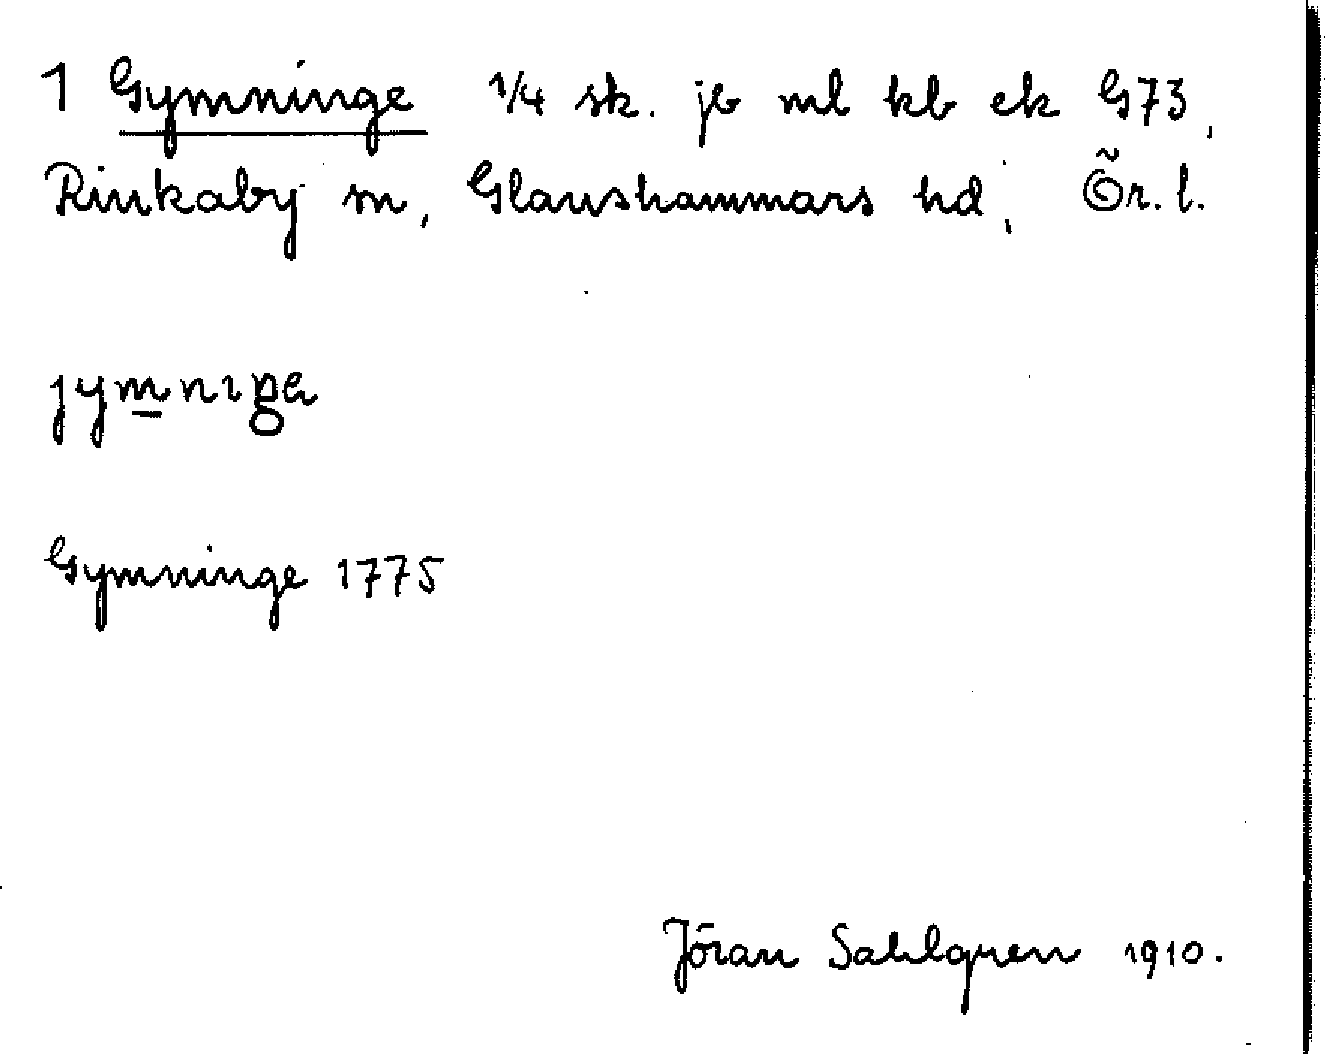 1 Gymninge 1/4 sk. jb ml kb ek G73,
Rinkaby sn, Glanshammars hd, Ör. l.
jymnıŋa
Gymninge 1775
Jöran Sahlgren 1910.